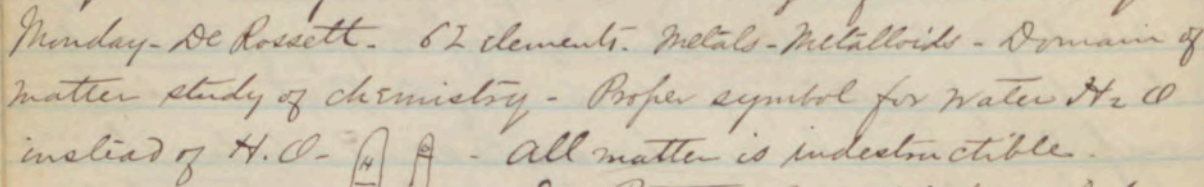 Monday - De Rossett - 62 elements. Metals - Metalloids - Domain of
matter study of chemistry - Proper symbol for water H2 O
instead of H. O - H O - All matter is indestructible.